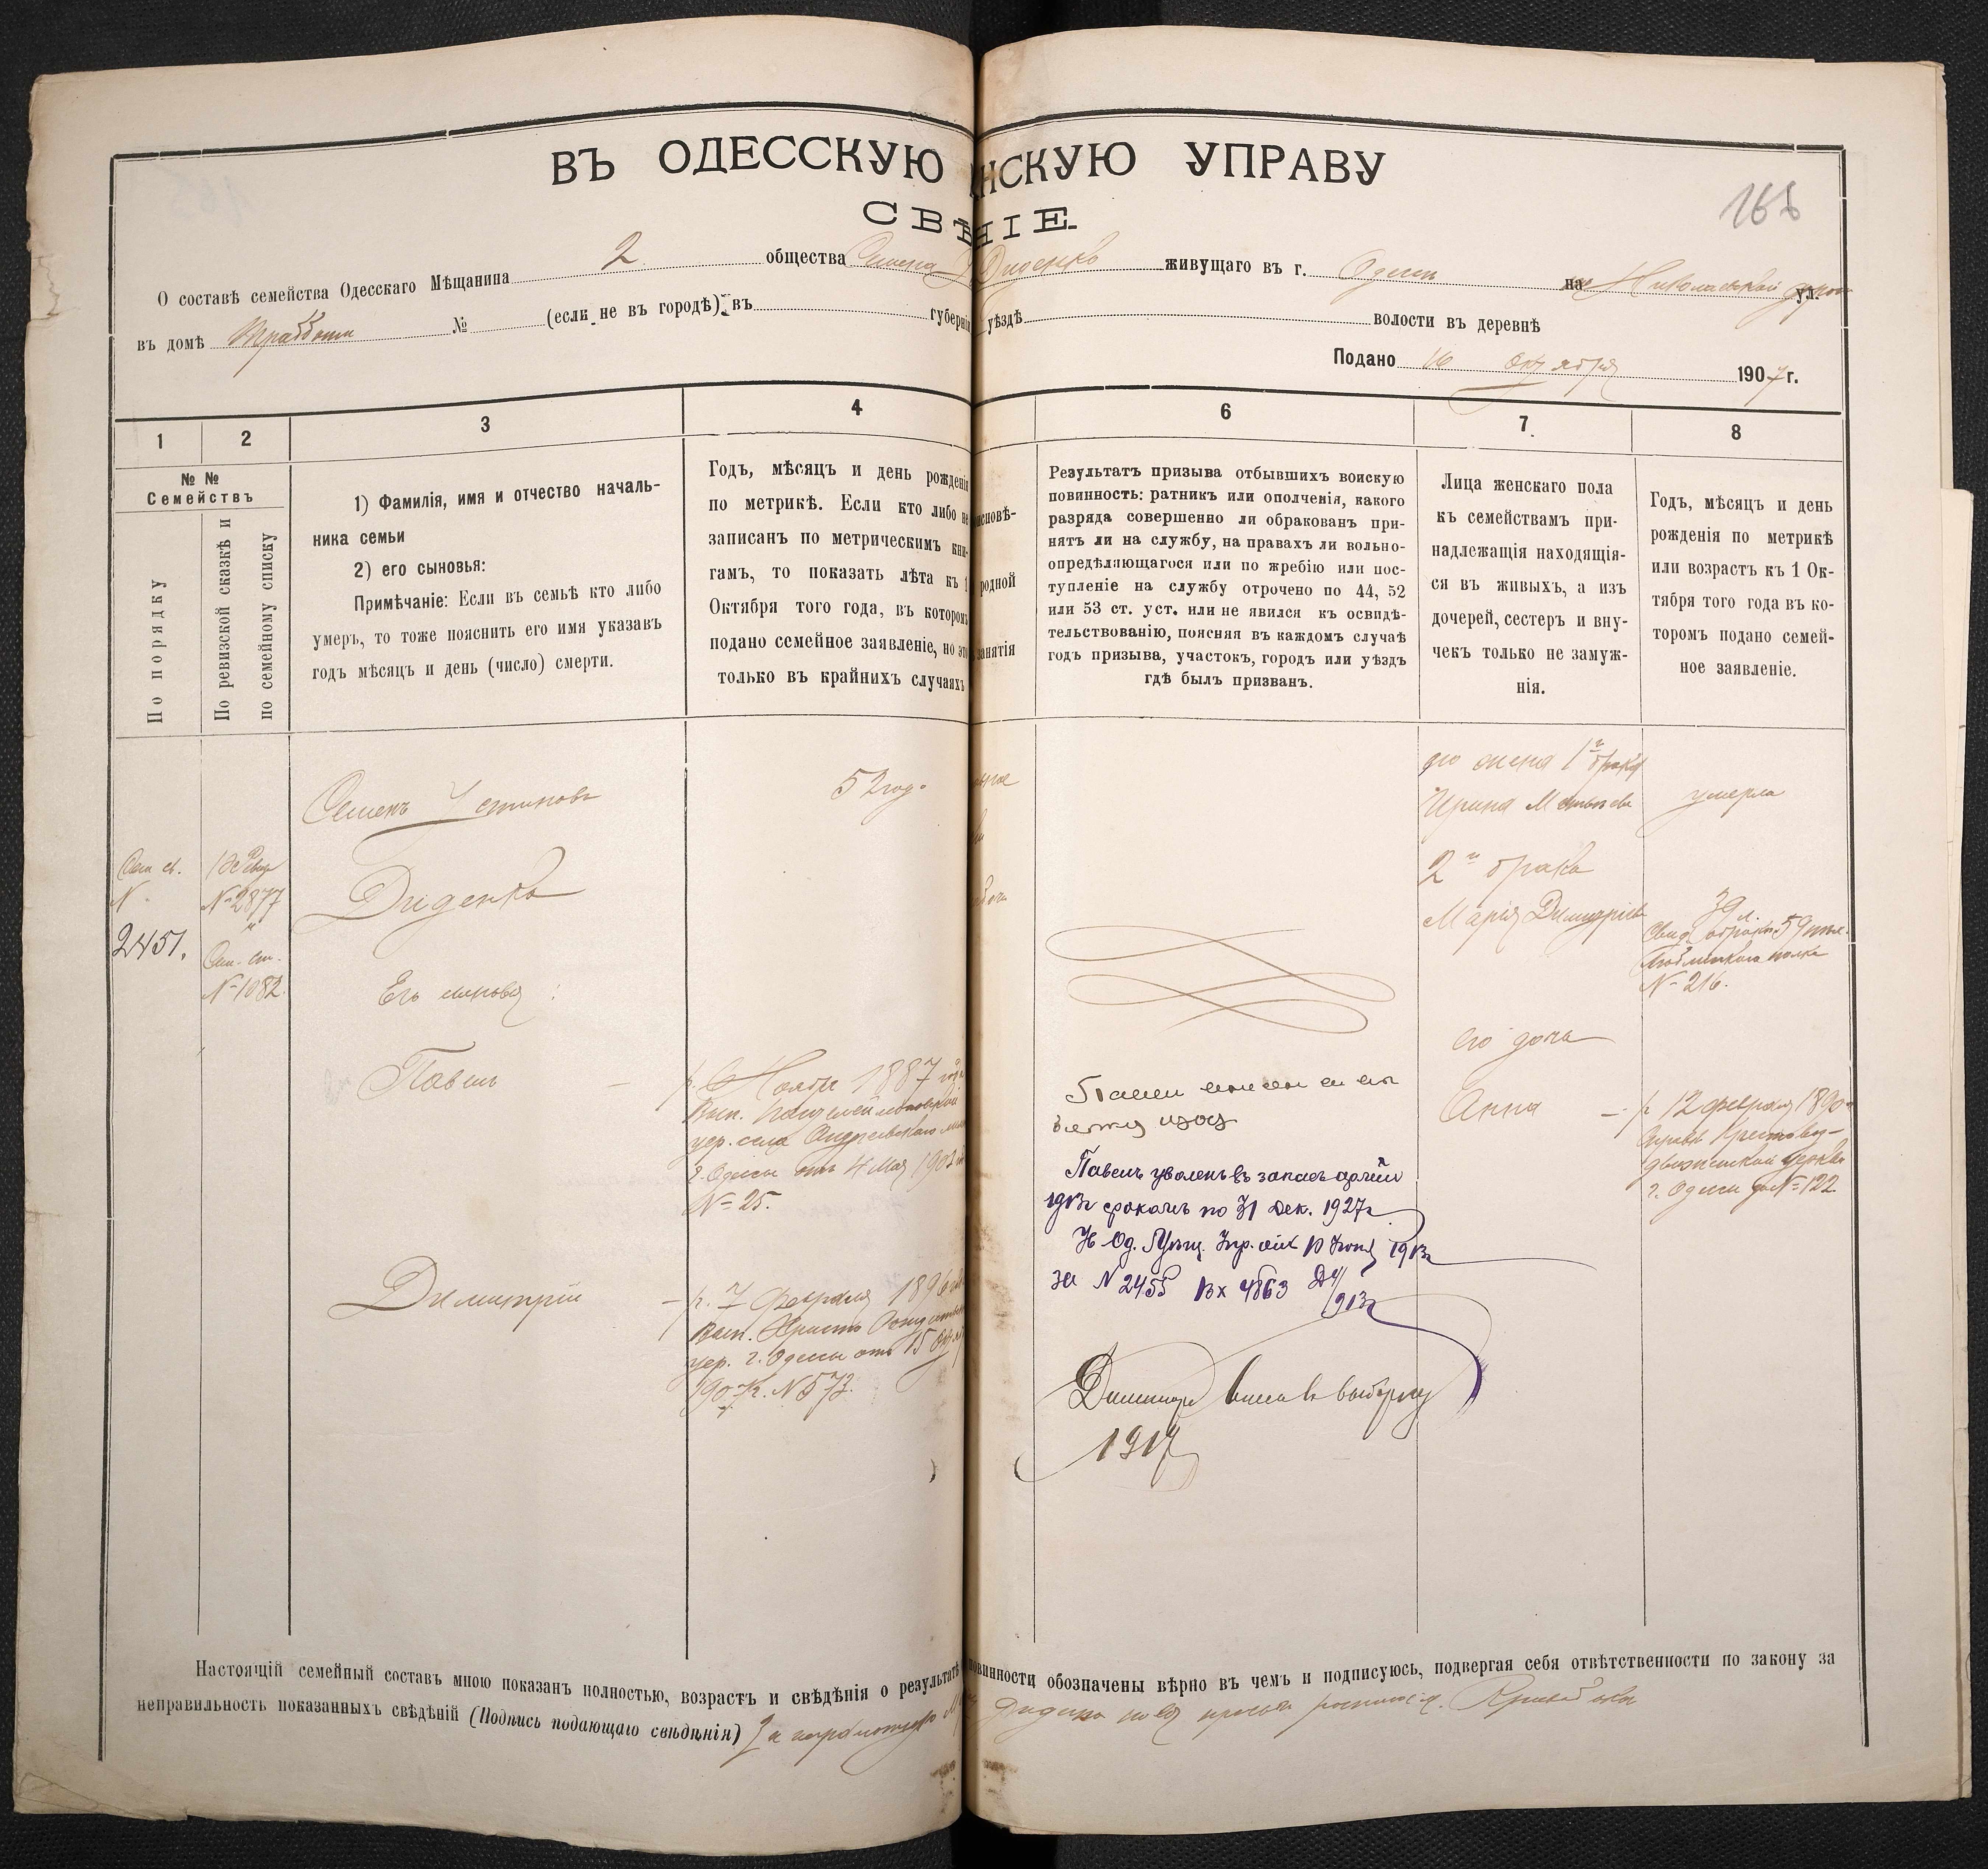 ВЪ ОДЕССКУЮ НСКУЮ УПРАВУ
СВѢ НІЕ.
166
О составѣ семейства Одесскаго Мѣщанина 2 общества Семена Диденко живущаго въ г. Одессѣ на Николаевской дорог ул.
въ домѣ № (если не въ городѣ) въ губерніи уѣздѣ волости въ деревнѣ
Подано 16 Октября 1907 г.
1 2 3 4 6 7. 8
№ №
Семействъ
По порядку
По ревизской сказкѣ и
по семейному списку
1) Фамилія, имя и отчество началь-
ника семьи
2) его сыновья:
Примѣчаніе: Если въ семьѣ кто либо
умеръ, то тоже пояснить его имя указавъ
годъ мѣсяцъ и день (число) смерти.
Годъ, мѣсяцъ и день рожденія
по метрикѣ. Если кто либо не
записанъ по метрическимъ кни-
гамъ, то показать лѣта къ 1
Октября того года, въ которомъ
подано семейное заявленіе, но это
только въ крайнихъ случаяхъ
исповѣ-
родной
занятія
Результатъ призыва отбывшихъ воискую
повинность: ратникъ или ополченія, какого
разряда совершенно ли обракованъ при-
нятъ ли на службу, на правахъ ли вольно-
опредѣляющагося или по жребію или пос-
тупленіе на службу отрочено по 44, 52
или 53 ст. уст. или не явился къ освидѣ-
тельствованію, поясняя въ каждомъ случаѣ
годъ призыва, участокъ, городъ или уѣздъ
гдѣ былъ призванъ.
Лица женскаго пола
къ семействамъ при-
надлежащія находящія-
ся въ живыхъ, а изъ
дочерей, сестеръ и вну-
чекъ только не замуж-
нія.
Годъ, мѣсяцъ и день
рожденія по метрикѣ
или возрастъ къ 1 Ок-
тября того года въ ко-
торомъ подано семей-
ное заявленіе.
Сем. сп.
N
2451.
N 2877
Сем. сп.
N 1082.
Семенъ Устиновъ
Диденко
Его сыновья:
Павелъ —
Димитрій
52 год.
р. Ноября 1887 года
Вып.
цер. села Андреевскаго
г. Одессы отъ 4 Мая 1903
N 25.
— р. 7 Февраля 1896
Вып.
цер. г. Одессы отъ 15 Окт
1907 г. N 573.
Павелъ уволенъ въ запасъ арміи
1913 г срокомъ по 31 Дек. 1927 г
за N 2455 Вх 4863
913 г
Димитрій
1917
его жена 1го брака
Ирина Матвѣева
2го брака
Марія Димитріева
его дочь
Анна
умерла
39 л.
59 пѣх.
Люблинскаго полка
N 216.
— р. 12 Февраля 1890
Крестовоз-
движенской церкви
г. Одессы за N 122
Настоящій семейный составъ мною показанъ полностью, возрастъ и свѣдѣнія о результатѣ повинности обозначены вѣрно въ чемъ и подписуюсь, подвергая себя отвѣтственности по закону за
неправильность показанныхъ свѣдѣній (Подпись подающаго свѣдѣнія) За неграмотную Диденко по ея просьбѣ росписался.